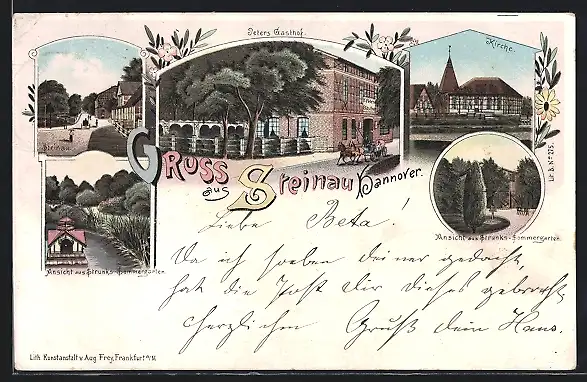 Peters Gasthof.
Kirche.
Steinau
GRUSS
aus
Steinau Hannover.
Lit. B. No 275.
Ansicht aus Strunks-Sommergarten.
Ansicht aus Strunks-Sommergarten.
Liebe Beta!
Da ich soeben deiner gedacht,
hat die Post dir dieses gebracht
Herzlichen Gruß dein Hans.
Lith. Kunstanstalt v. Aug. Frey, Frankfurt a/M.